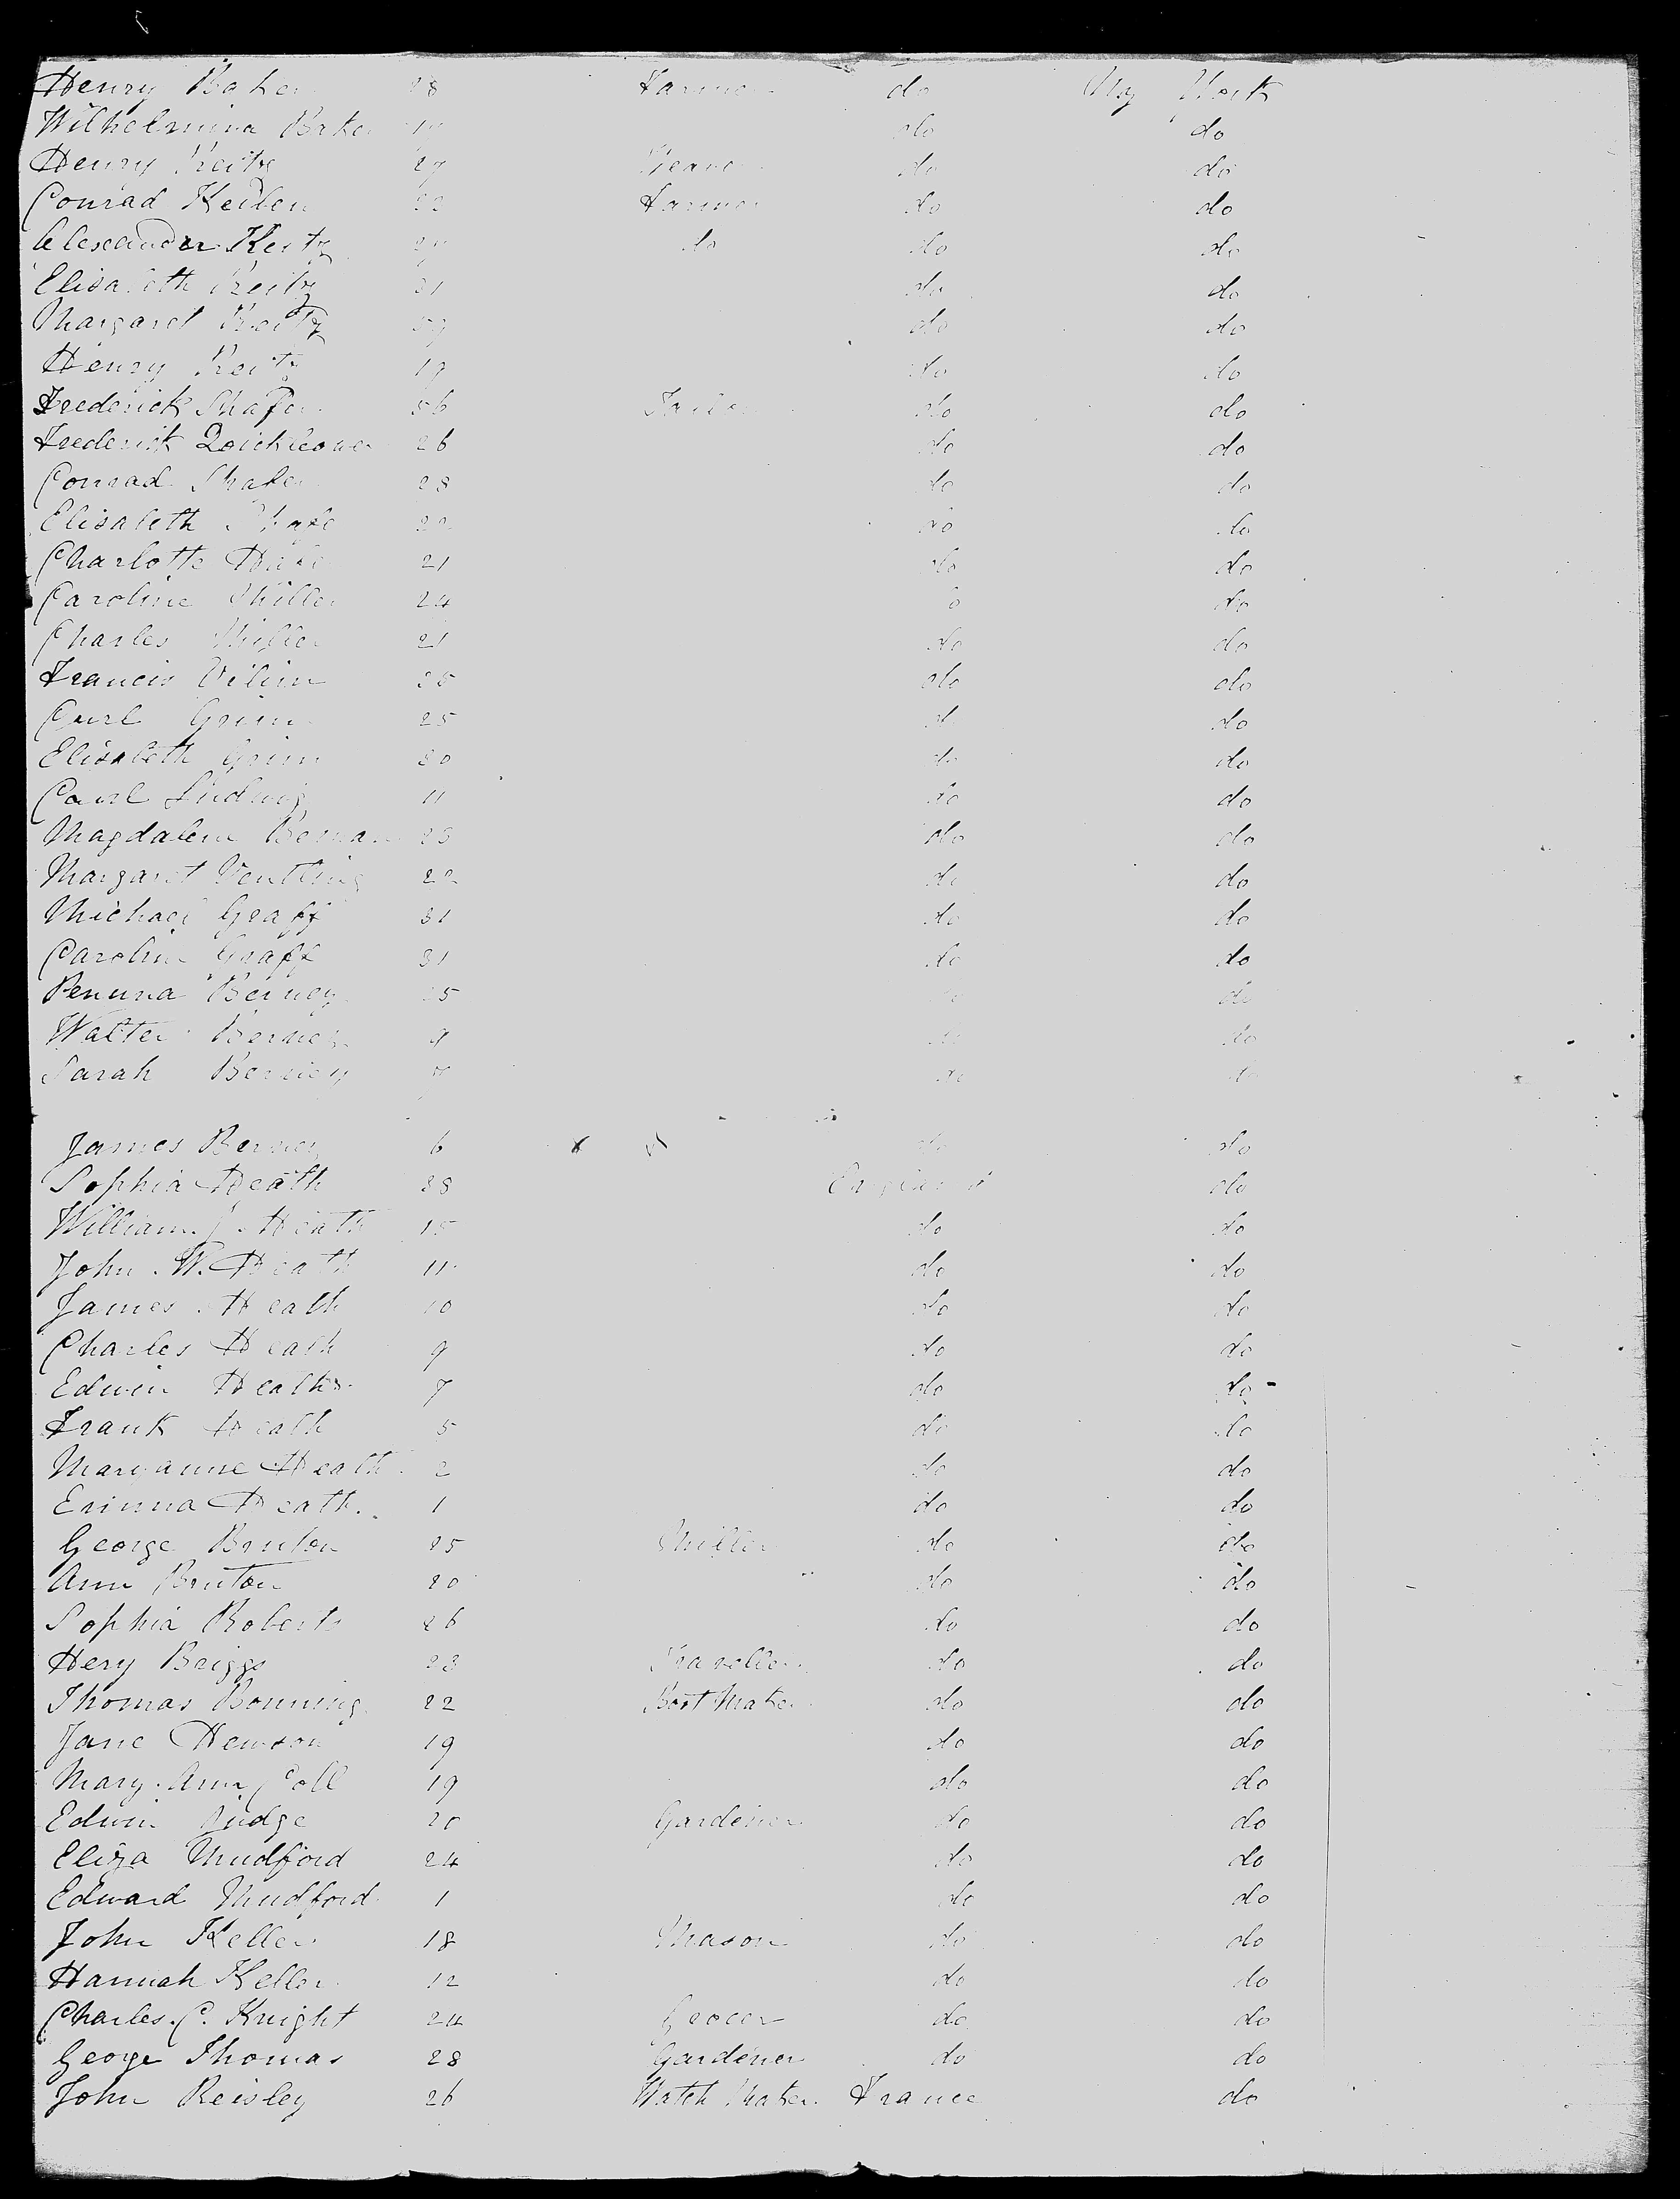 Henry Baker 28 Farmer do New York
Wilhelmina Baker 19 do do
Henry Reitz 27 do do
Conrad Keilen 22 Farmer do do
Alexander Reitz 27 do do do
Elisabeth Reitz 31 do do
Margaret Reitz 59 do do
Henry Reitz 19 do do
Frederick Shafer 56 do do
Frederick 26 do do
Conrad Shafer 28 do do
Elisabeth Shafe 22 do do
Charlotte 21 do do
Caroline Miller 24 do do
Charles Miller 21 do do
Francis 25 do do
Carl Grim 25 do do
Elisabeth Grim 30 do do
Carl Ludwig 11 do do
Magdalena 23 do do
Margaret Ventling 22 do do
Michael Graff 31 do do
Caroline Graff 31 do do
Penuna Berney 25 do do
Walter Berney 9 do do
Sarah Berney 7 do do
James Berney 6 do do
Sophia Heath 38 England do
William J. Heath 15 do do
John W. Heath 11 do do
James Heath 10 do do
Charles Heath 9 do do
Edwin Heath 7 do do
Frank Heath 5 do do
Maryanne Heath 2 do do
Erinna Heath. 1 do do
George Bruton 25 Miller do do
Ann Bruton 20 do do
Sophia Roberts 26 do do
Hery Briggs 23 Traveller do do
Thomas Bonning 22 Boot Maker do do
Jane Hewson 19 do do
Mary Ann Coll 19 do do
Edwin Rudge 20 Gardener do do
Eliza Mudford 24 do do
Edward Mudford 1 do do
John Keller 18 Mason do do
Hannah Keller 12 do do
Charles. C. Knight 24 Grocer do do
George Thomas 28 Gardener do do
John Reisley 26 Watch Maker France do